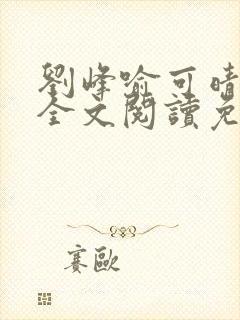 劉峰喻可晴
全文閱讀免
賽歐